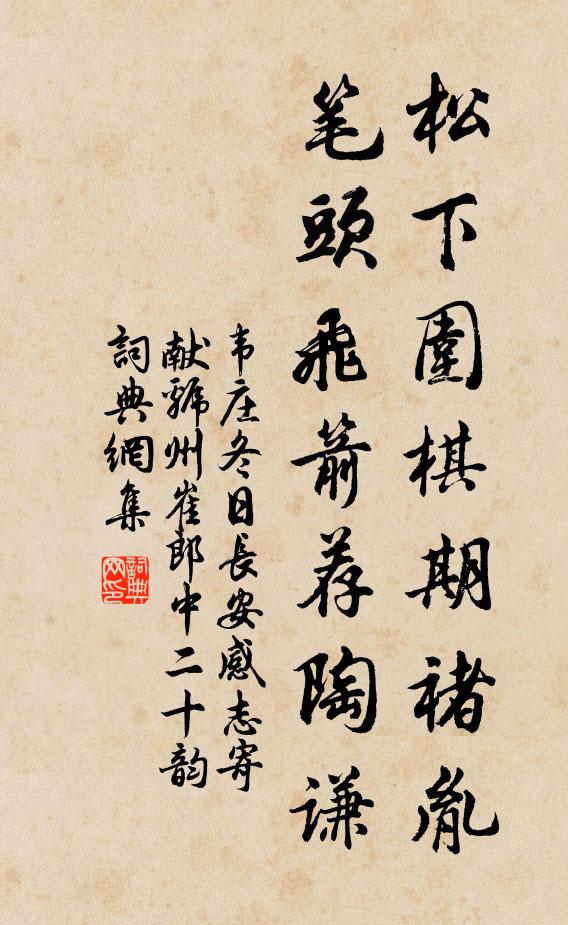 松下圍棋期褚胤
笔頭飛箭荐陶谦
韦庄冬日長安感志寄
献虢州崔郎中二十韵
詞典網集
詞典网印